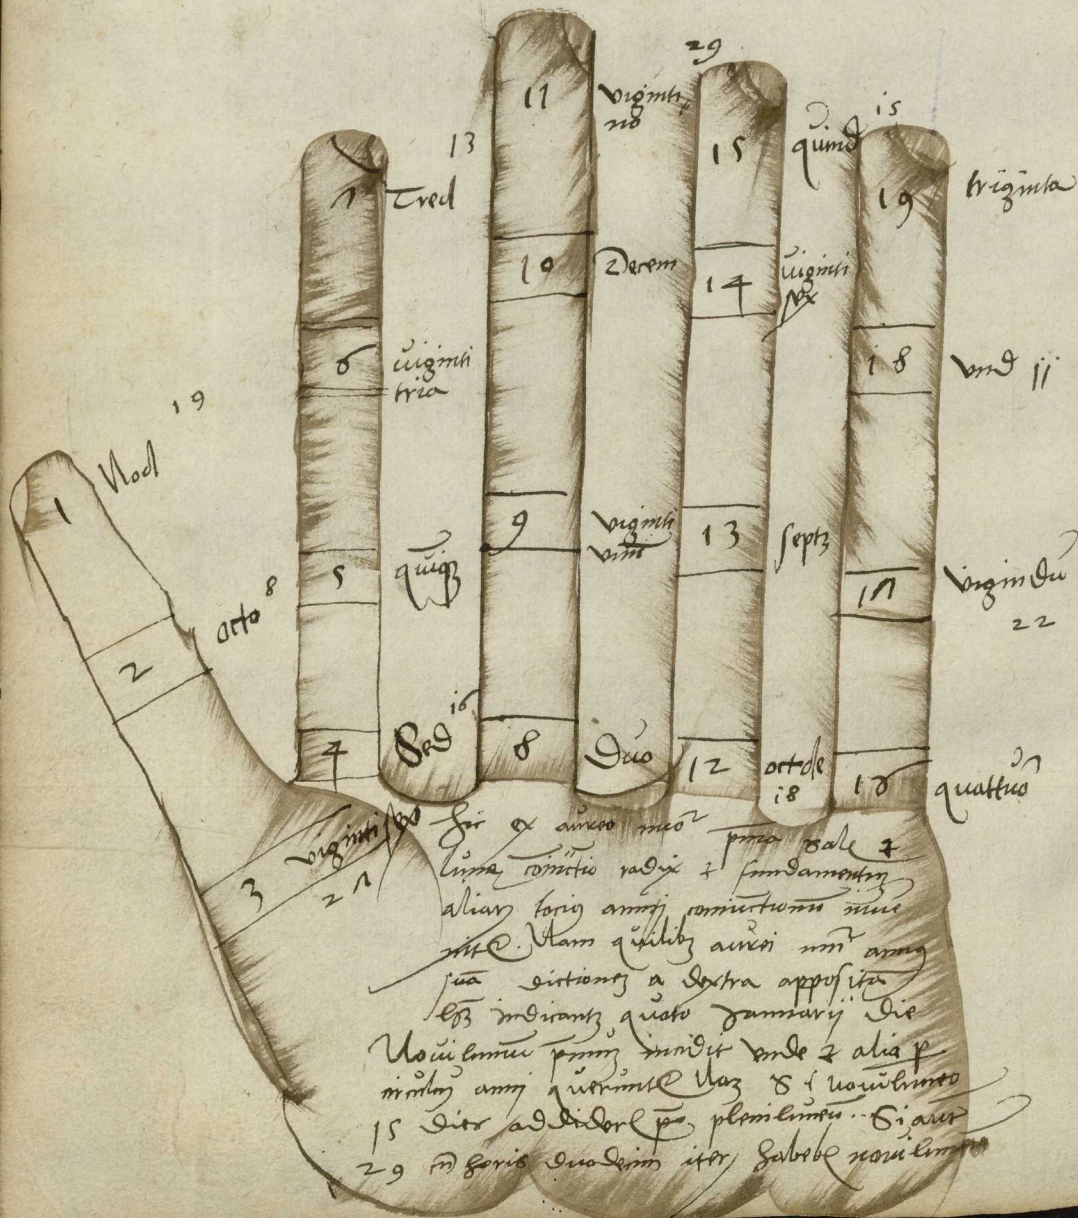 29
15
11
viginti
no
13
15
quind
1
Tred
19
triginta
10
Decem
14
viginti
sex
6
viginti
tria
18
und 11
19
1
Nod
9
viginti
13
septz
5
quiqz
17
vigindu
22
octo 8
2
16
4
Sed
8
Duo
12
octde
18
16
quattuo
viginti
3
27
hic ex aureo nuo pma solis et
lune coniuctio radix et fundamentuz
aliarz tocius anni coniuctionu inue
nitur. Nam quilibz aurei nuri annus
sua dictionez a dextra apposita
hz indicantz quoto Januarij die
Novilunuu pmuz incidit unde et alia p
circuluz anni queruntur Naz Si novilunio
15 dies addideris plenilunu. Si aut
29 cu horis duodecim iteruz habebis novilunu